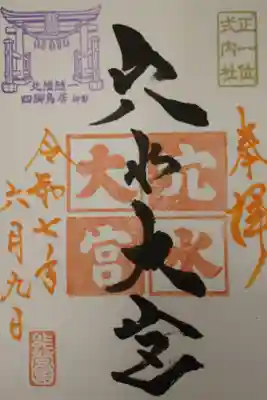 正一位
式内社
奉拝
穴水大宮
穴水
大宮
北陸随一
四脚鳥居
令和七年
六月九日